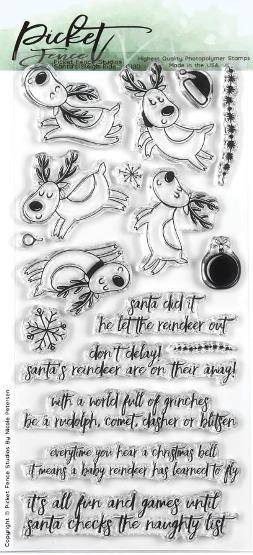 Picket
Fence
Highest Quality Photopolymer Stamps
Picket Fence Studios
Made in the USA
Santa's Sleigh Ride
santa did it
he let the reindeer out
don't delay!
santa's reindeer are on their away!
with a world full of grinches
be a rudolph, comet, dasher or blitzen
everytime you hear a christmas bell
it means a baby reindeer has learned to fly
it's all fun and games until
santa checks the naughty list
Copyright © Picket Fence Studios By Nicole Peterson